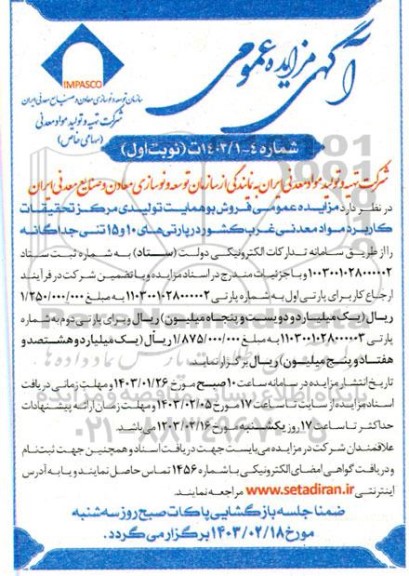 آگهی مزایده عمومی
IMPASCO
سازمان توسعه و نوسازی معادن و صنایع معدنی ایران
شرکت تهیه و تولید مواد معدنی
(سهامی خاص)
شماره ٤-١٤٠٣/١ت (نوبت اول)
شرکت تهیه و تولید مواد معدنی ایران به نمایندگی از سازمان توسعه و نوسازی معادن و صنایع معدنی ایران
در نظر دارد مزایده عمومی فروش بوهمایت تولیدی مرکز تحقیقات
کاربرد مواد معدنی غرب کشور در پارتی های ١٠ و ١٥ تنی جداگانه
را از طریق سامانه تدارکات الکترونیکی دولت (ستاد) به شماره ثبت ستاد
١٠٠٣٠٠١٠٢٨٠٠٠٠٠٢ و با جزئیات مندرج در اسناد مزایده و با تضمین شرکت در فرآیند
ارجاع کار برای پارتی اول به شماره پارتی ١١٠٣٠٠١٠٢٨٠٠٠٠٠٢ به مبلغ ١/٢٥٠/٠٠٠/٠٠٠
ریال (یک میلیارد و دویست و پنجاه میلیون) ریال و برای پارتی دوم به شماره
پارتی ١١٠٣٠٠١٠٢٨٠٠٠٠٠٣ به مبلغ ١/٨٧٥/٠٠٠/٠٠٠ ریال (یک میلیارد و هشتصد و
هفتاد و پنج میلیون) ریال برگزار نماید.
تاریخ انتشار مزایده در سامانه ساعت ١٠ صبح مورخ ١٤٠٣/٠١/٢٦ و مهلت زمانی دریافت
اسناد مزایده از سایت تا ساعت ١٧ مورخ ١٤٠٣/٠٢/٠٥ و مهلت زمان ارائه پیشنهادات
حداکثر تا ساعت ١٧ روز یکشنبه مورخ ١٤٠٣/٠٢/١٦ می باشد.
علاقمندان شرکت در مزایده می بایست جهت دریافت اسناد و همچنین جهت ثبت نام
و دریافت گواهی امضای الکترونیکی با شماره ١٤٥٦ تماس حاصل نمایند و یا به آدرس
اینترنتی www.setadiran.ir مراجعه نمایند.
ضمنا جلسه بازگشایی پاکات صبح روز سه شنبه
مورخ ١٤٠٣/٠٢/١٨ برگزار می گردد.